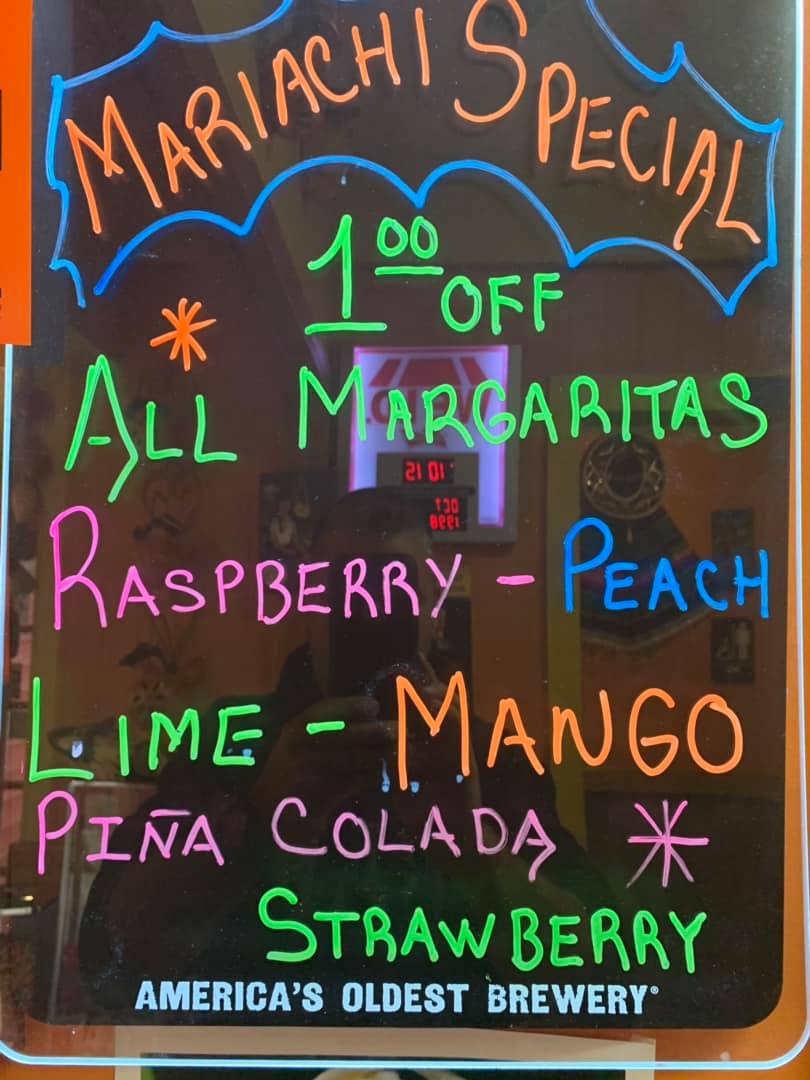 MARIACHI SPECIAL
1.00 OFF
* ALL MARGARITAS
RASPBERRY - PEACH
LIME - MANGO
PIÑA COLADA *
STRAWBERRY
AMERICA'S OLDEST BREWERY®